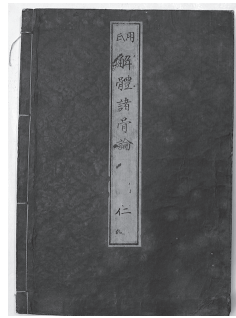 用氏
解體諸骨論
仁